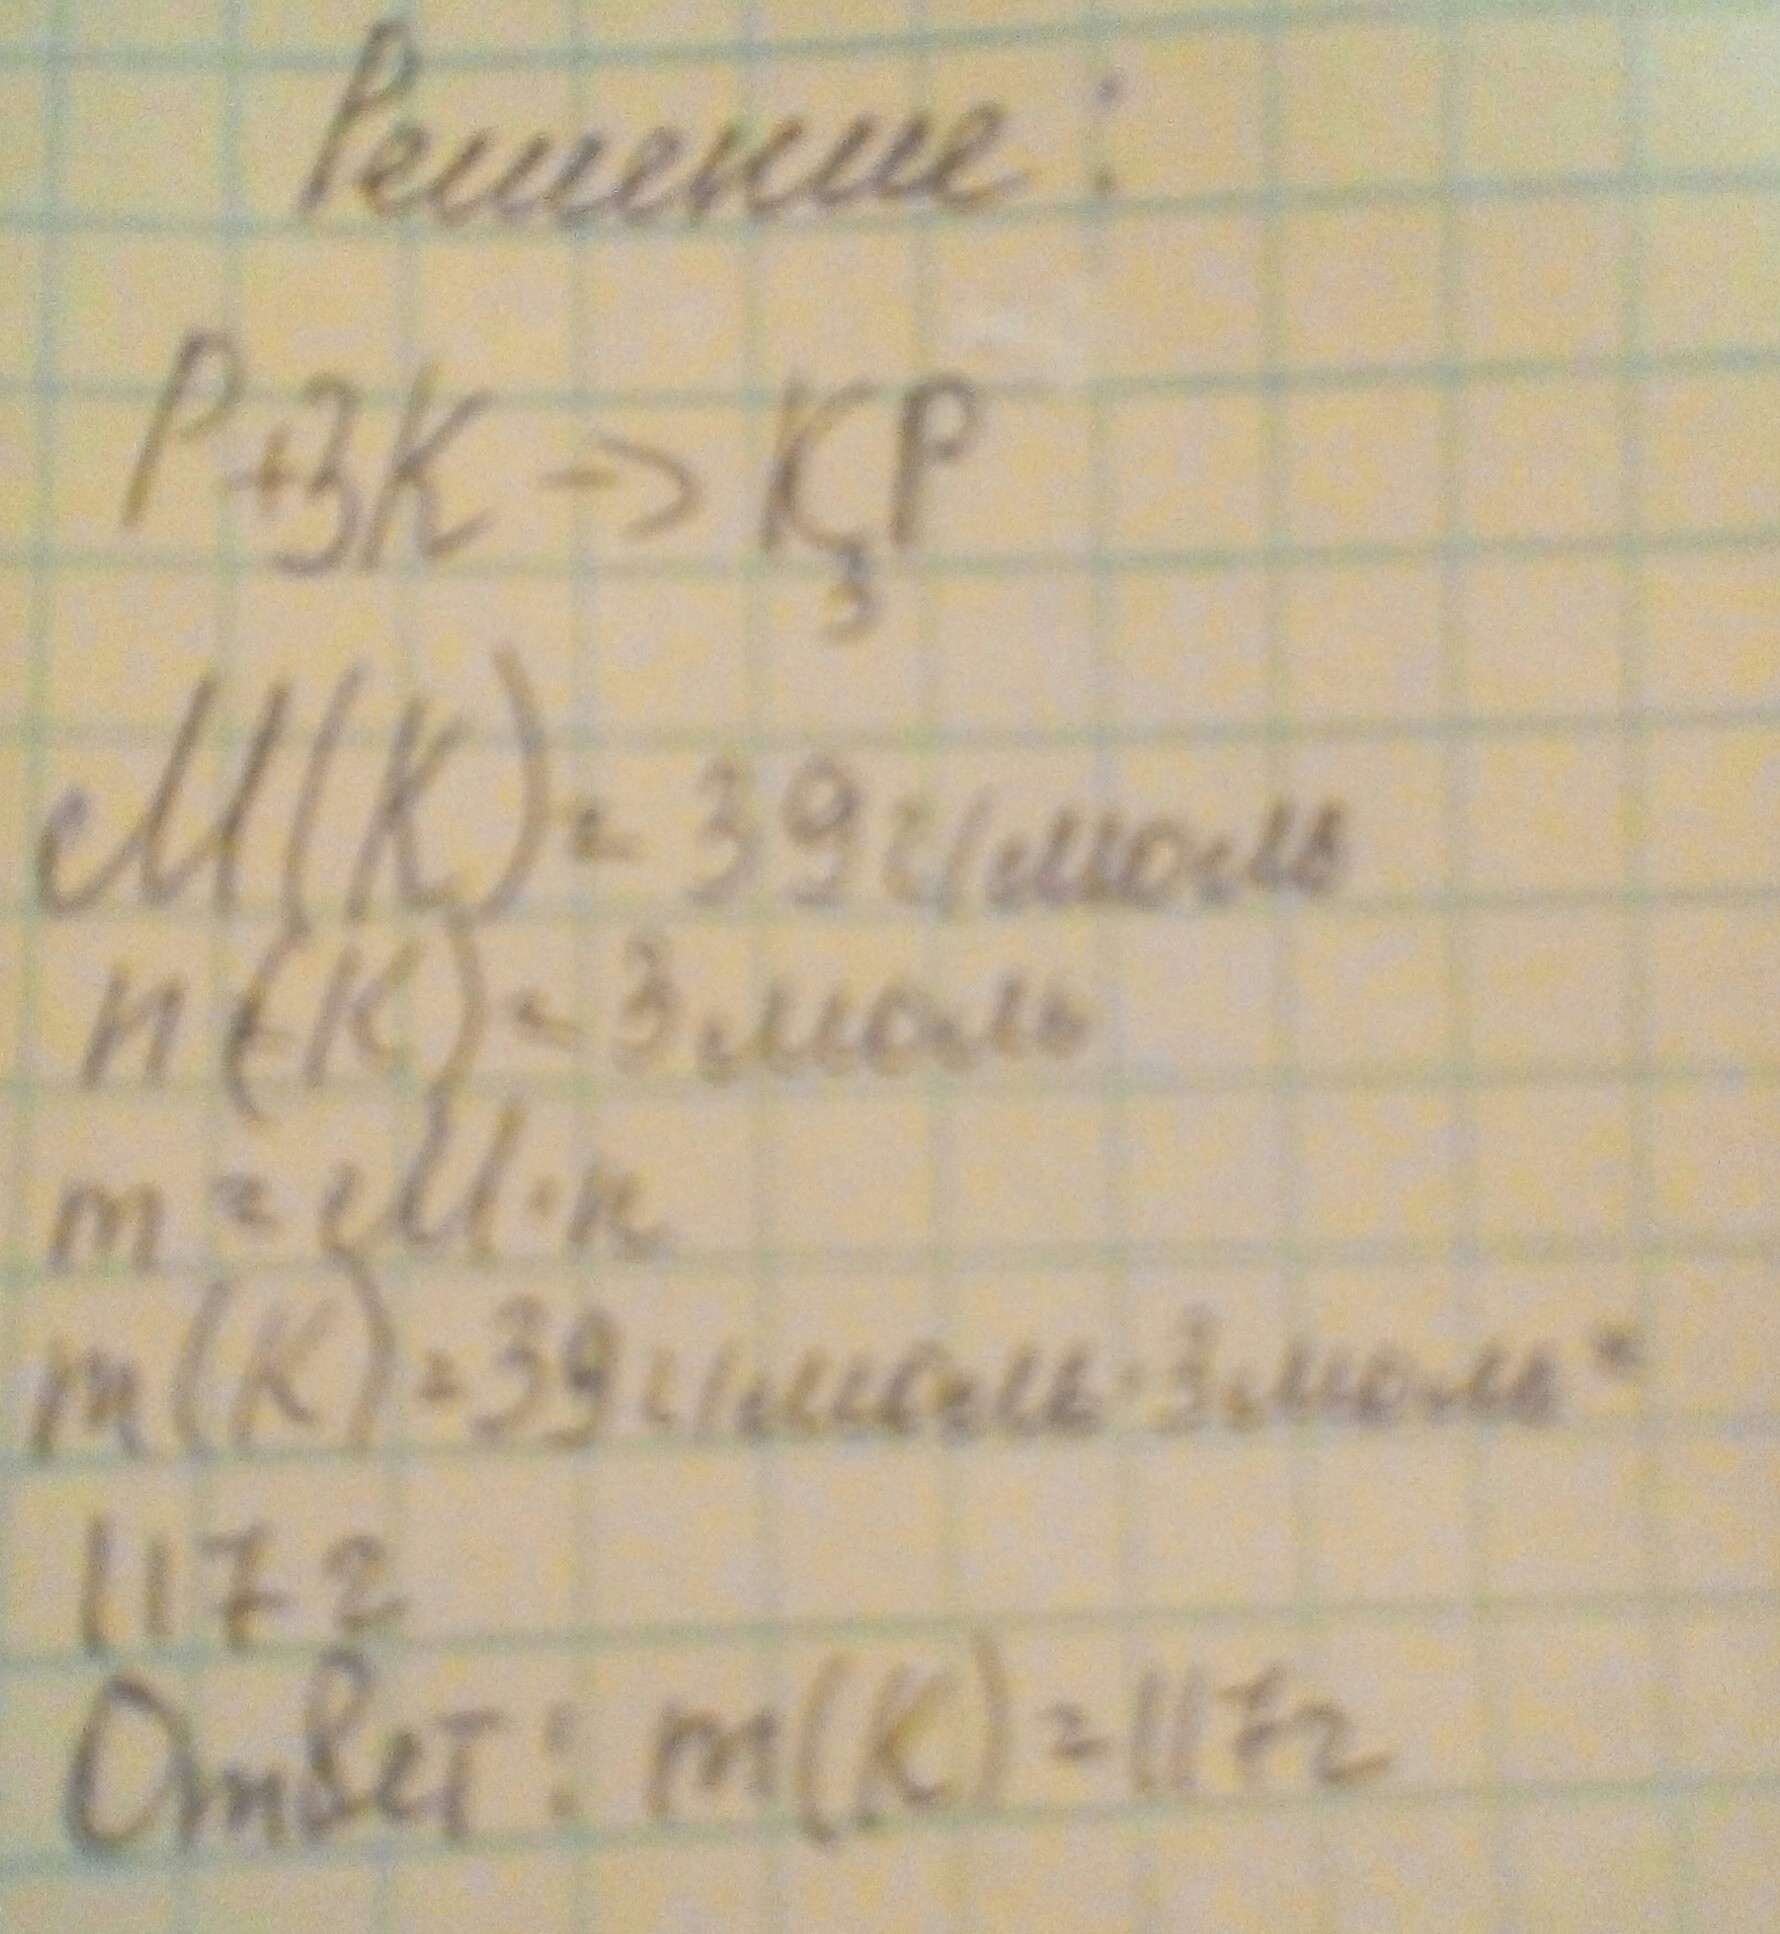 Решение:
P+3K → K₃P
M(K) = 39 г/моль
n(K) = 3 моль
m = M · n
m(K) = 39 г/моль · 3 моль =
117 г
Ответ: m(K) = 117 г